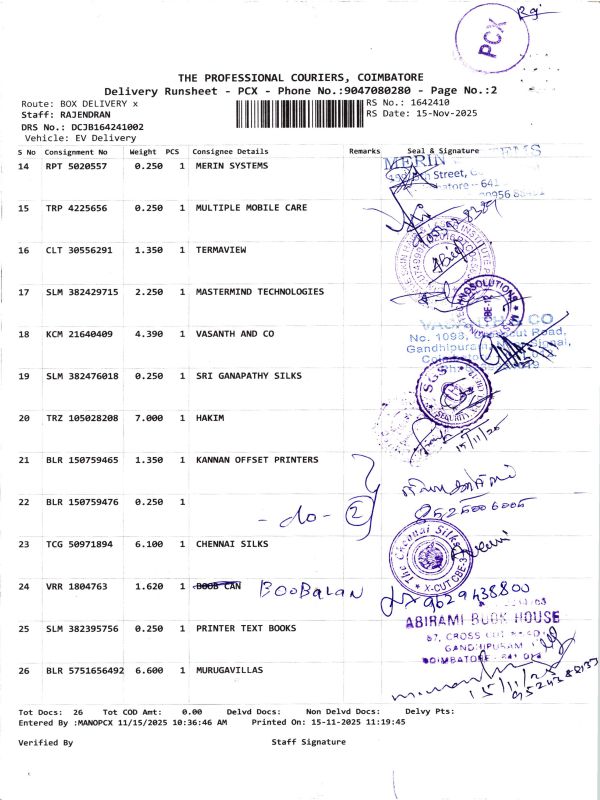 PCX
THE PROFESSIONAL COURIERS, COIMBATORE
Delivery Runsheet - PCX - Phone No.:9047080280 - Page No.:2
Route: BOX DELIVERY x
RS No.: 1642410
Staff: RAJENDRAN
RS Date: 15-Nov-2025
DRS No.: DCJB164241002
Vehicle: EV Delivery
S No Consignment No Weight PCS Consignee Details Remarks Seal & Signature
14 RPT 5020557 0.250 1 MERIN SYSTEMS
15 TRP 4225656 0.250 1 MULTIPLE MOBILE CARE
16 CLT 30556291 1.350 1 TERMAVIEW
17 SLM 382429715 2.250 1 MASTERMIND TECHNOLOGIES
18 KCM 21640409 4.390 1 VASANTH AND CO
No. 1098,
Gandhipuram,
19 SLM 382476018 0.250 1 SRI GANAPATHY SILKS
SGS
20 TRZ 105028208 7.000 1 HAKIM
15/11/25
21 BLR 150759465 1.350 1 KANNAN OFFSET PRINTERS
22 BLR 150759476 0.250 1
- do - 2
23 TCG 50971894 6.100 1 CHENNAI SILKS
The Chennai Silks
X-CUT, CBE-3
24 VRR 1804763 1.620 1 BOOB CAN BOOBALAN
9629438800
ABIRAMI BOOK HOUSE
25 SLM 382395756 0.250 1 PRINTER TEXT BOOKS
67, CROSS CUT ROAD
GANDHIPURAM
COIMBATORE
26 BLR 5751656492 6.600 1 MURUGAVILLAS
15/11/25
Tot Docs: 26 Tot COD Amt: 0.00 Delvd Docs: Non Delvd Docs: Delvy Pts:
Entered By :MANOPCX 11/15/2025 10:36:46 AM Printed On: 15-11-2025 11:19:45
Verified By Staff Signature